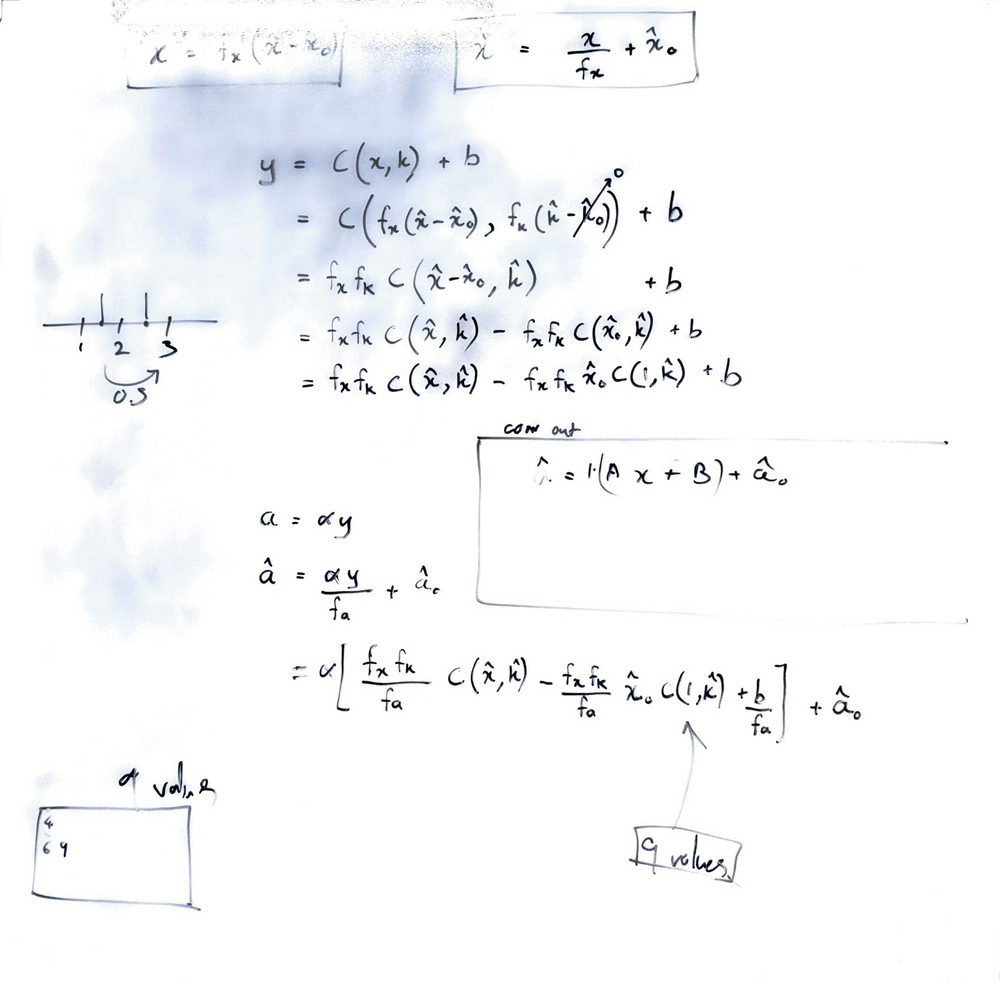 x = fx (x̂ - x̂₀)
x̂ = x/fx + x̂₀
y = C(x, k) + b
= C(fx(x̂ - x̂₀), fk(k̂ - k̂₀)) + b
0
= fx fk C(x̂ - x̂₀, k̂) + b
= fx fk C(x̂, k̂) - fx fk C(x̂₀, k̂) + b
= fx fk C(x̂, k̂) - fx fk x̂₀ C(1, k̂) + b
1 2 3
0.5
conv out
= 1·(A x + B) + â₀
a = αy
â = αy/fa + â₀
= α[fx fk/fa C(x̂, k̂) - fx fk/fa x̂₀ C(1, k̂) + b/fa] + â₀
4
6 9
9 values